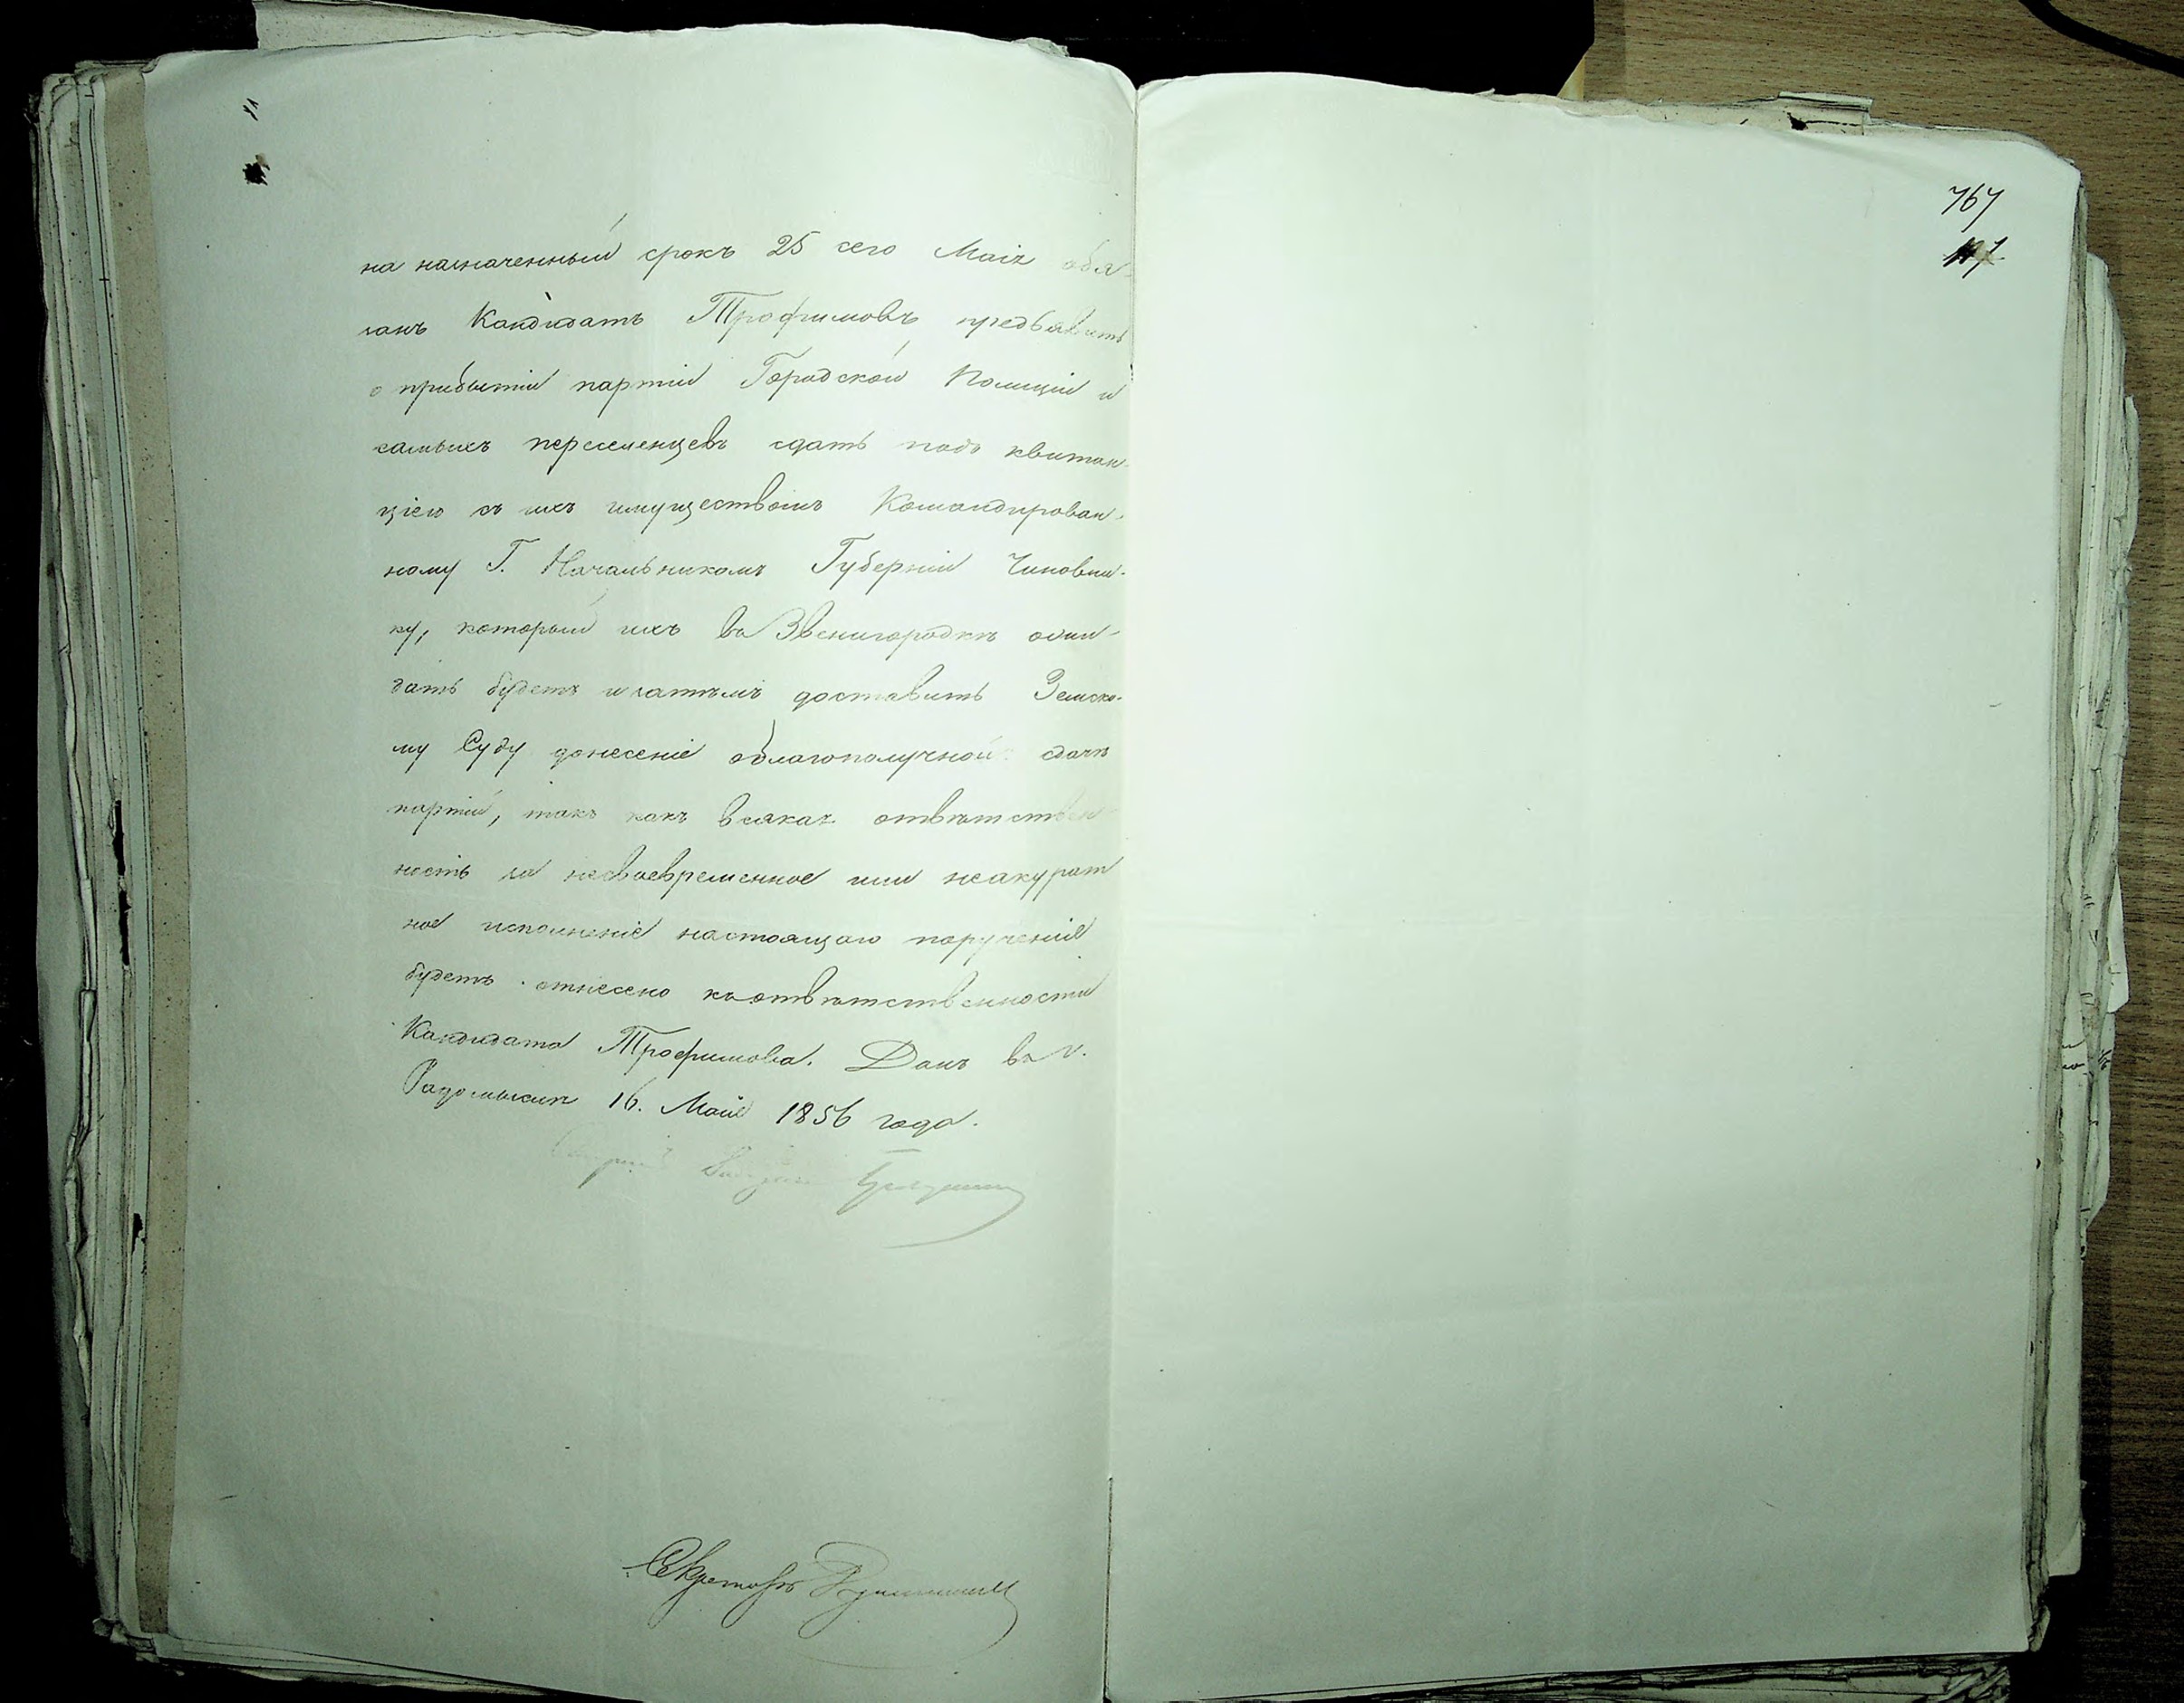 на назначенный срокъ 25 сего Маія обя-
занъ Кандидатъ Трофимовъ предъявить
о прибытіи партіи Городской Полиціи и
самыхъ переселенцевъ сдать подъ квитан-
цією съ ихъ имуществомъ Командирован-
ному Г. Начальникомъ Губерніи Чиновни-
ку, который ихъ въ Звенигородкѣ ожи-
дать будетъ и затѣмъ доставить Земско-
му Суду донесеніе о благополучной сдачѣ
партіи, такъ какъ всякая отвѣтствен-
ность за несвоевременное или неакурат
ное исполненіе настоящаго порученія
будетъ отнесено къ отвѣтственности
Кандидата Трофимова. Данъ въ г.
Радомыслѣ 16. Маія 1856 года.
Секретарь
767